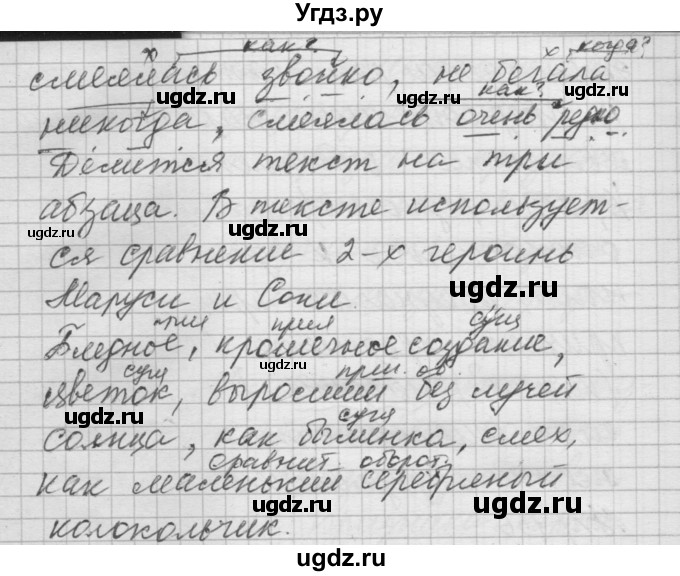 Угдз.ру
как? когда?
смеялась звонко, не бегала
ugdz.ru ugdz.ru
как?
никогда, смеялась очень редко
ugdz.ru ugdz.ru
Делится текст на три
абзаца. В тексте использует-
ugdz.ru ugdz.ru
ся сравнение 2-х героинь
ugdz.ru
Маруси и Сони.
прил сущ
Бледное, крошечное создание,
ugdz.ru
сущ прич. об.
цветок, выросший без лучей
ugdz.ru ugdz.ru
сущ
солнца, как былинка, смех,
сравнит. оборот
как маленький серебряный
ugdz.ru ugdz.ru
колокольчик.
ugdz.ru